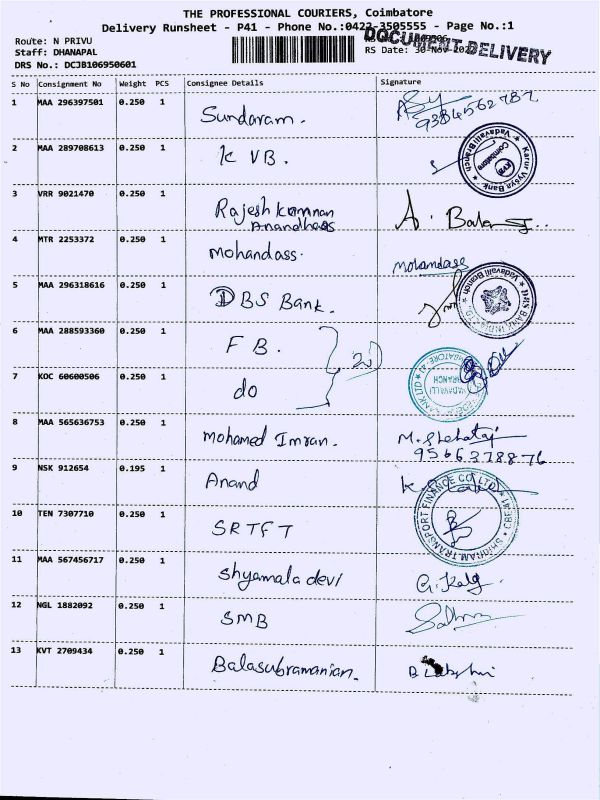 THE PROFESSIONAL COURIERS, Coimbatore
Delivery Runsheet - P41 - Phone No.:0422-3505555 - Page No.:1
Route: N PRIVU
Staff: DHANAPAL
DRS No.: DCJB106950601
RS Date: 30-Nov-2022
DOCUMENT DELIVERY
S No Consignment No Weight PCS Consignee Details Signature
1 MAA 296397501 0.250 1 Sundaram. 9384562787
2 MAA 289708613 0.250 1 KVB. Karur Vysya Bank Vadavalli Branch Coimbatore KVB
3 VRR 9021470 0.250 1 Rajesh Kannan A.
Anandhaas
4 MTR 2253372 0.250 1 Mohandass. Mohandass
5 MAA 296318616 0.250 1 DBS Bank. DBS BANK INDIA LTD Vadavalli Branch
6 MAA 288593360 0.250 1 FB.
7 KOC 60600506 0.250 1 do VADAVALLI BRANCH
8 MAA 565636753 0.250 1 Mohamed Imran.
9566378876
9 NSK 912654 0.195 1 Anand
10 TEN 7307710 0.250 1 SRTFT SHRIRAM TRANSPORT FINANCE CO LTD CBE
11 MAA 567456717 0.250 1 Shyamala devi
12 NGL 1882092 0.250 1 SMB
13 KVT 2709434 0.250 1 Balasubramanian.